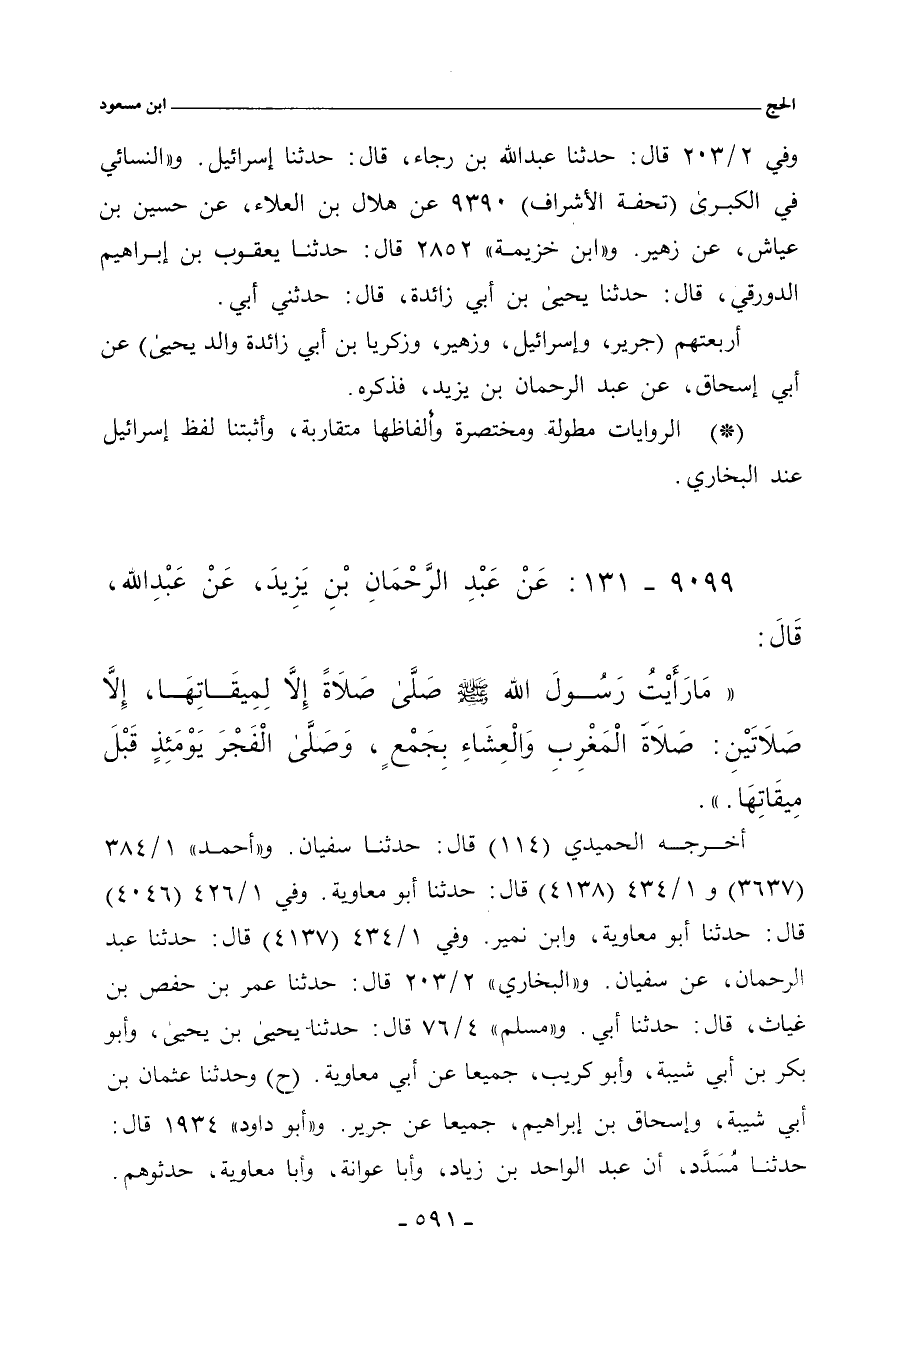 الحج ابن مسعود
وفي ٢٠٣/٢ قال: حدثنا عبدالله بن رجاء، قال: حدثنا إسرائيل. و«النسائي
في الكبرىٰ (تحفة الأشراف) ٩٣٩٠ عن هلال بن العلاء، عن حسين بن
عياش، عن زهير. و«ابن خزيمة» ٢٨٥٢ قال: حدثنا يعقوب بن إبراهيم
الدورقي، قال: حدثنا يحيىٰ بن أبي زائدة، قال: حدثني أبي.
أربعتهم (جرير، وإسرائيل، وزهير، وزكريا بن أبي زائدة والد يحيىٰ) عن
أبي إسحاق، عن عبد الرحمان بن يزيد، فذكره.
(*) الروايات مطولة ومختصرة وألفاظها متقاربة، وأثبتنا لفظ إسرائيل
عند البخاري.
٩٠٩٩ - ١٣١: عَنْ عَبْدِ الرَّحْمَانِ بْنِ يَزِيدَ، عَنْ عَبْدِالله،
قَالَ:
« مَارَأَيْتُ رَسُولَ الله ﷺ صَلَّىٰ صَلَاةً إِلَّا لِمِيقَاتِهَا، إِلَّا
صَلَاتَيْنِ: صَلَاةَ الْمَغْرِبِ وَالْعِشَاءِ بِجَمْعٍ، وَصَلَّىٰ الْفَجْرَ يَوْمَئِذٍ قَبْلَ
مِيقَاتِهَا. ».
أخرجه الحميدي (١١٤) قال: حدثنا سفيان. و«أحمد» ٣٨٤/١
(٣٦٣٧) و ٤٣٤/١ (٤١٣٨) قال: حدثنا أبو معاوية. وفي ٤٢٦/١ (٤٠٤٦)
قال: حدثنا أبو معاوية، وابن نمير. وفي ٤٣٤/١ (٤١٣٧) قال: حدثنا عبد
الرحمان، عن سفيان. و«البخاري» ٢٠٣/٢ قال: حدثنا عمر بن حفص بن
غياث، قال: حدثنا أبي. و«مسلم» ٧٦/٤ قال: حدثنا يحيىٰ بن يحيىٰ، وأبو
بكر بن أبي شيبة، وأبو كريب، جميعا عن أبي معاوية. (ح) وحدثنا عثمان بن
أبي شيبة، وإسحاق بن إبراهيم، جميعا عن جرير. و«أبو داود» ١٩٣٤ قال:
حدثنا مُسَدَّد، أن عبد الواحد بن زياد، وأبا عوانة، وأبا معاوية، حدثوهم.
- ٥٩١ -